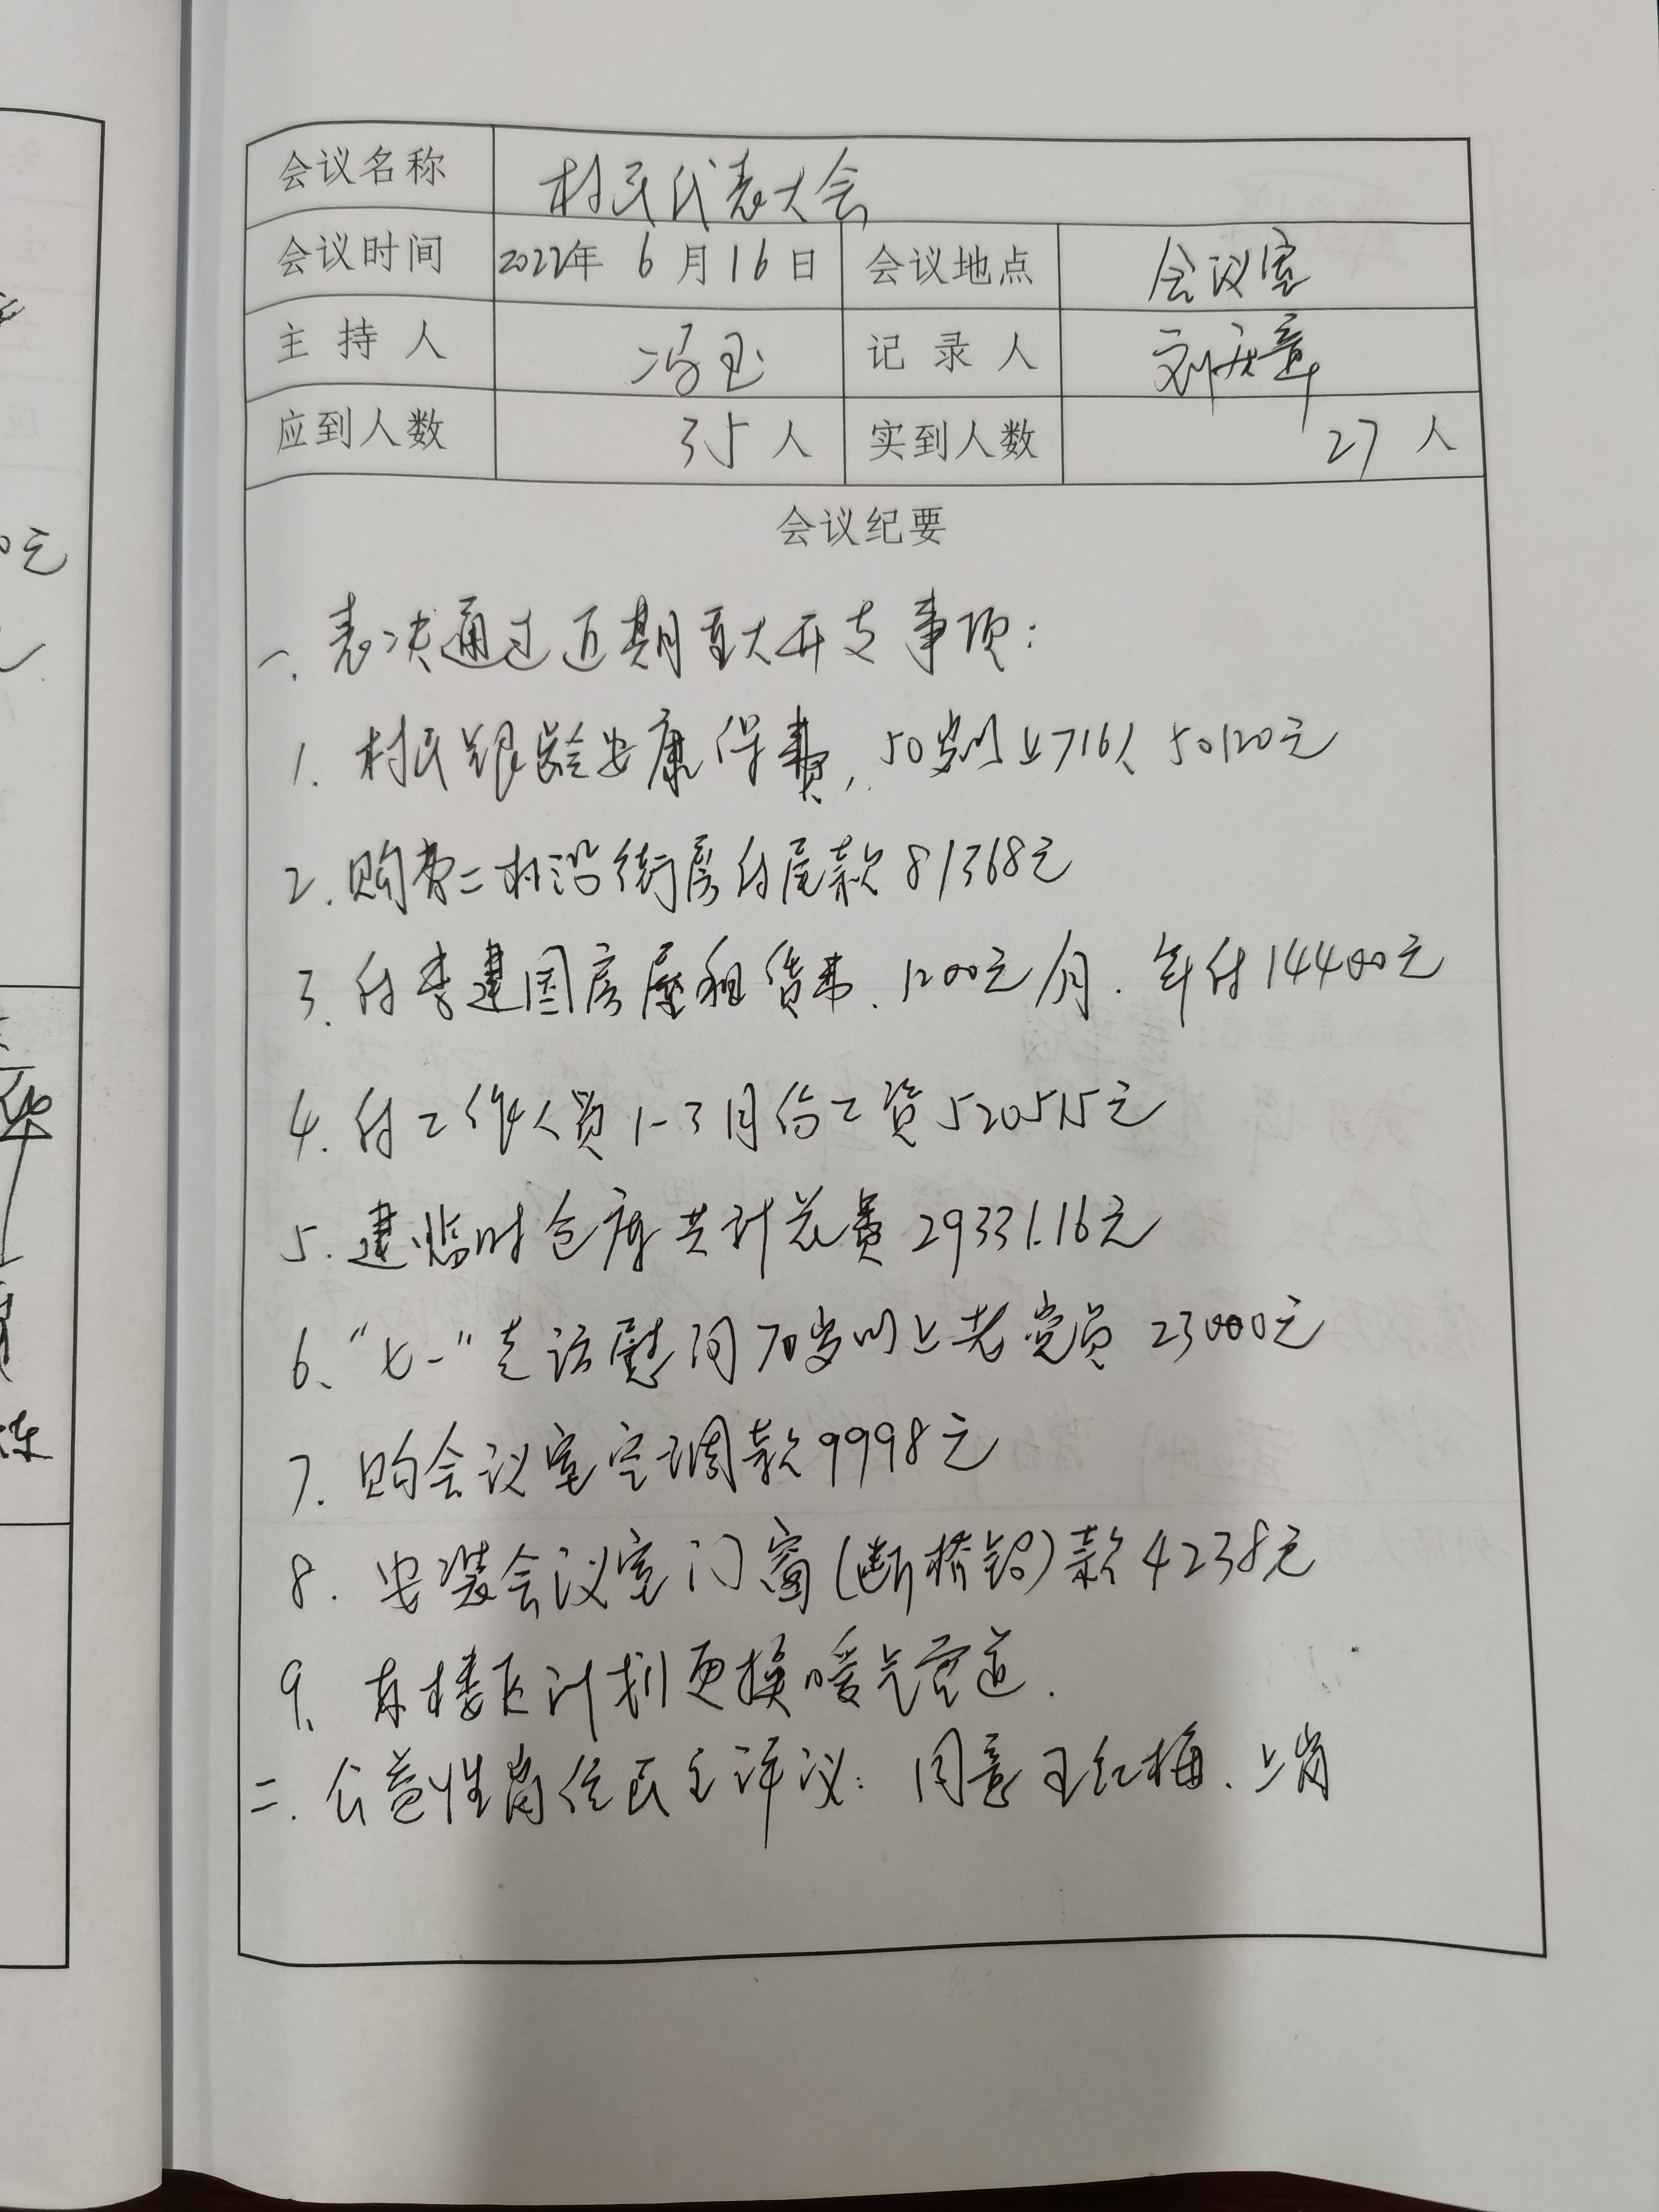 会议名称 村民代表大会
会议时间 2022年 6月16日 会议地点 会议室
主持人 冯玉 记录人 刘庆章
应到人数 35人 实到人数 27人
会议纪要
一、表决通过近期重大开支事项:
1. 村民银龄安康保费, 50岁以上716人 50120元
2. 购南二村沿街房付尾款81368元
3. 付李建国房屋租赁费、1200元/月. 年付14400元
4. 付工作人员1-3月份工资520515元
5. 建临时仓库共计花费29331.16元
6、"七一"走访慰问70岁以上老党员 23000元
7. 购会议室空调款9998元
8. 安装会议室门窗(断桥铝)款4238元
9、东楼区计划更换暖气管道.
二、公益性岗位民主评议: 同意王红梅、上岗
0元
栋